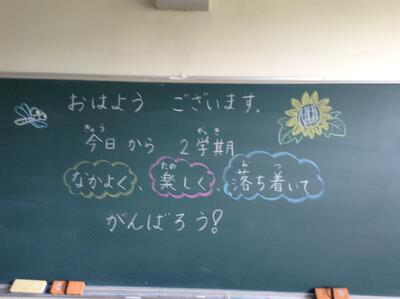 おはよう ございます。
今日から 2学期
なかよく、楽しく、落ち着いて
がんばろう!